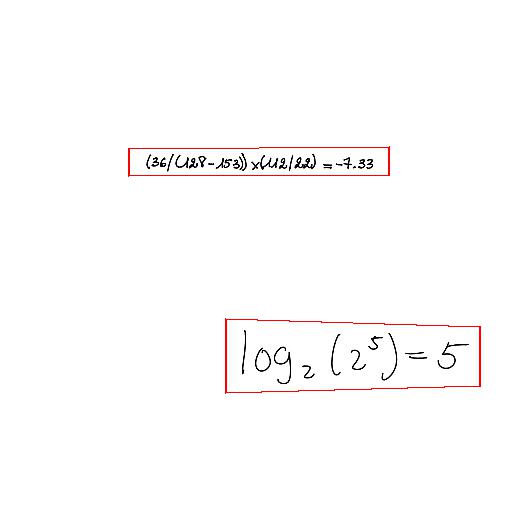 (36/(128-153))x(112/22) = -7.33
log₂(2⁵) = 5